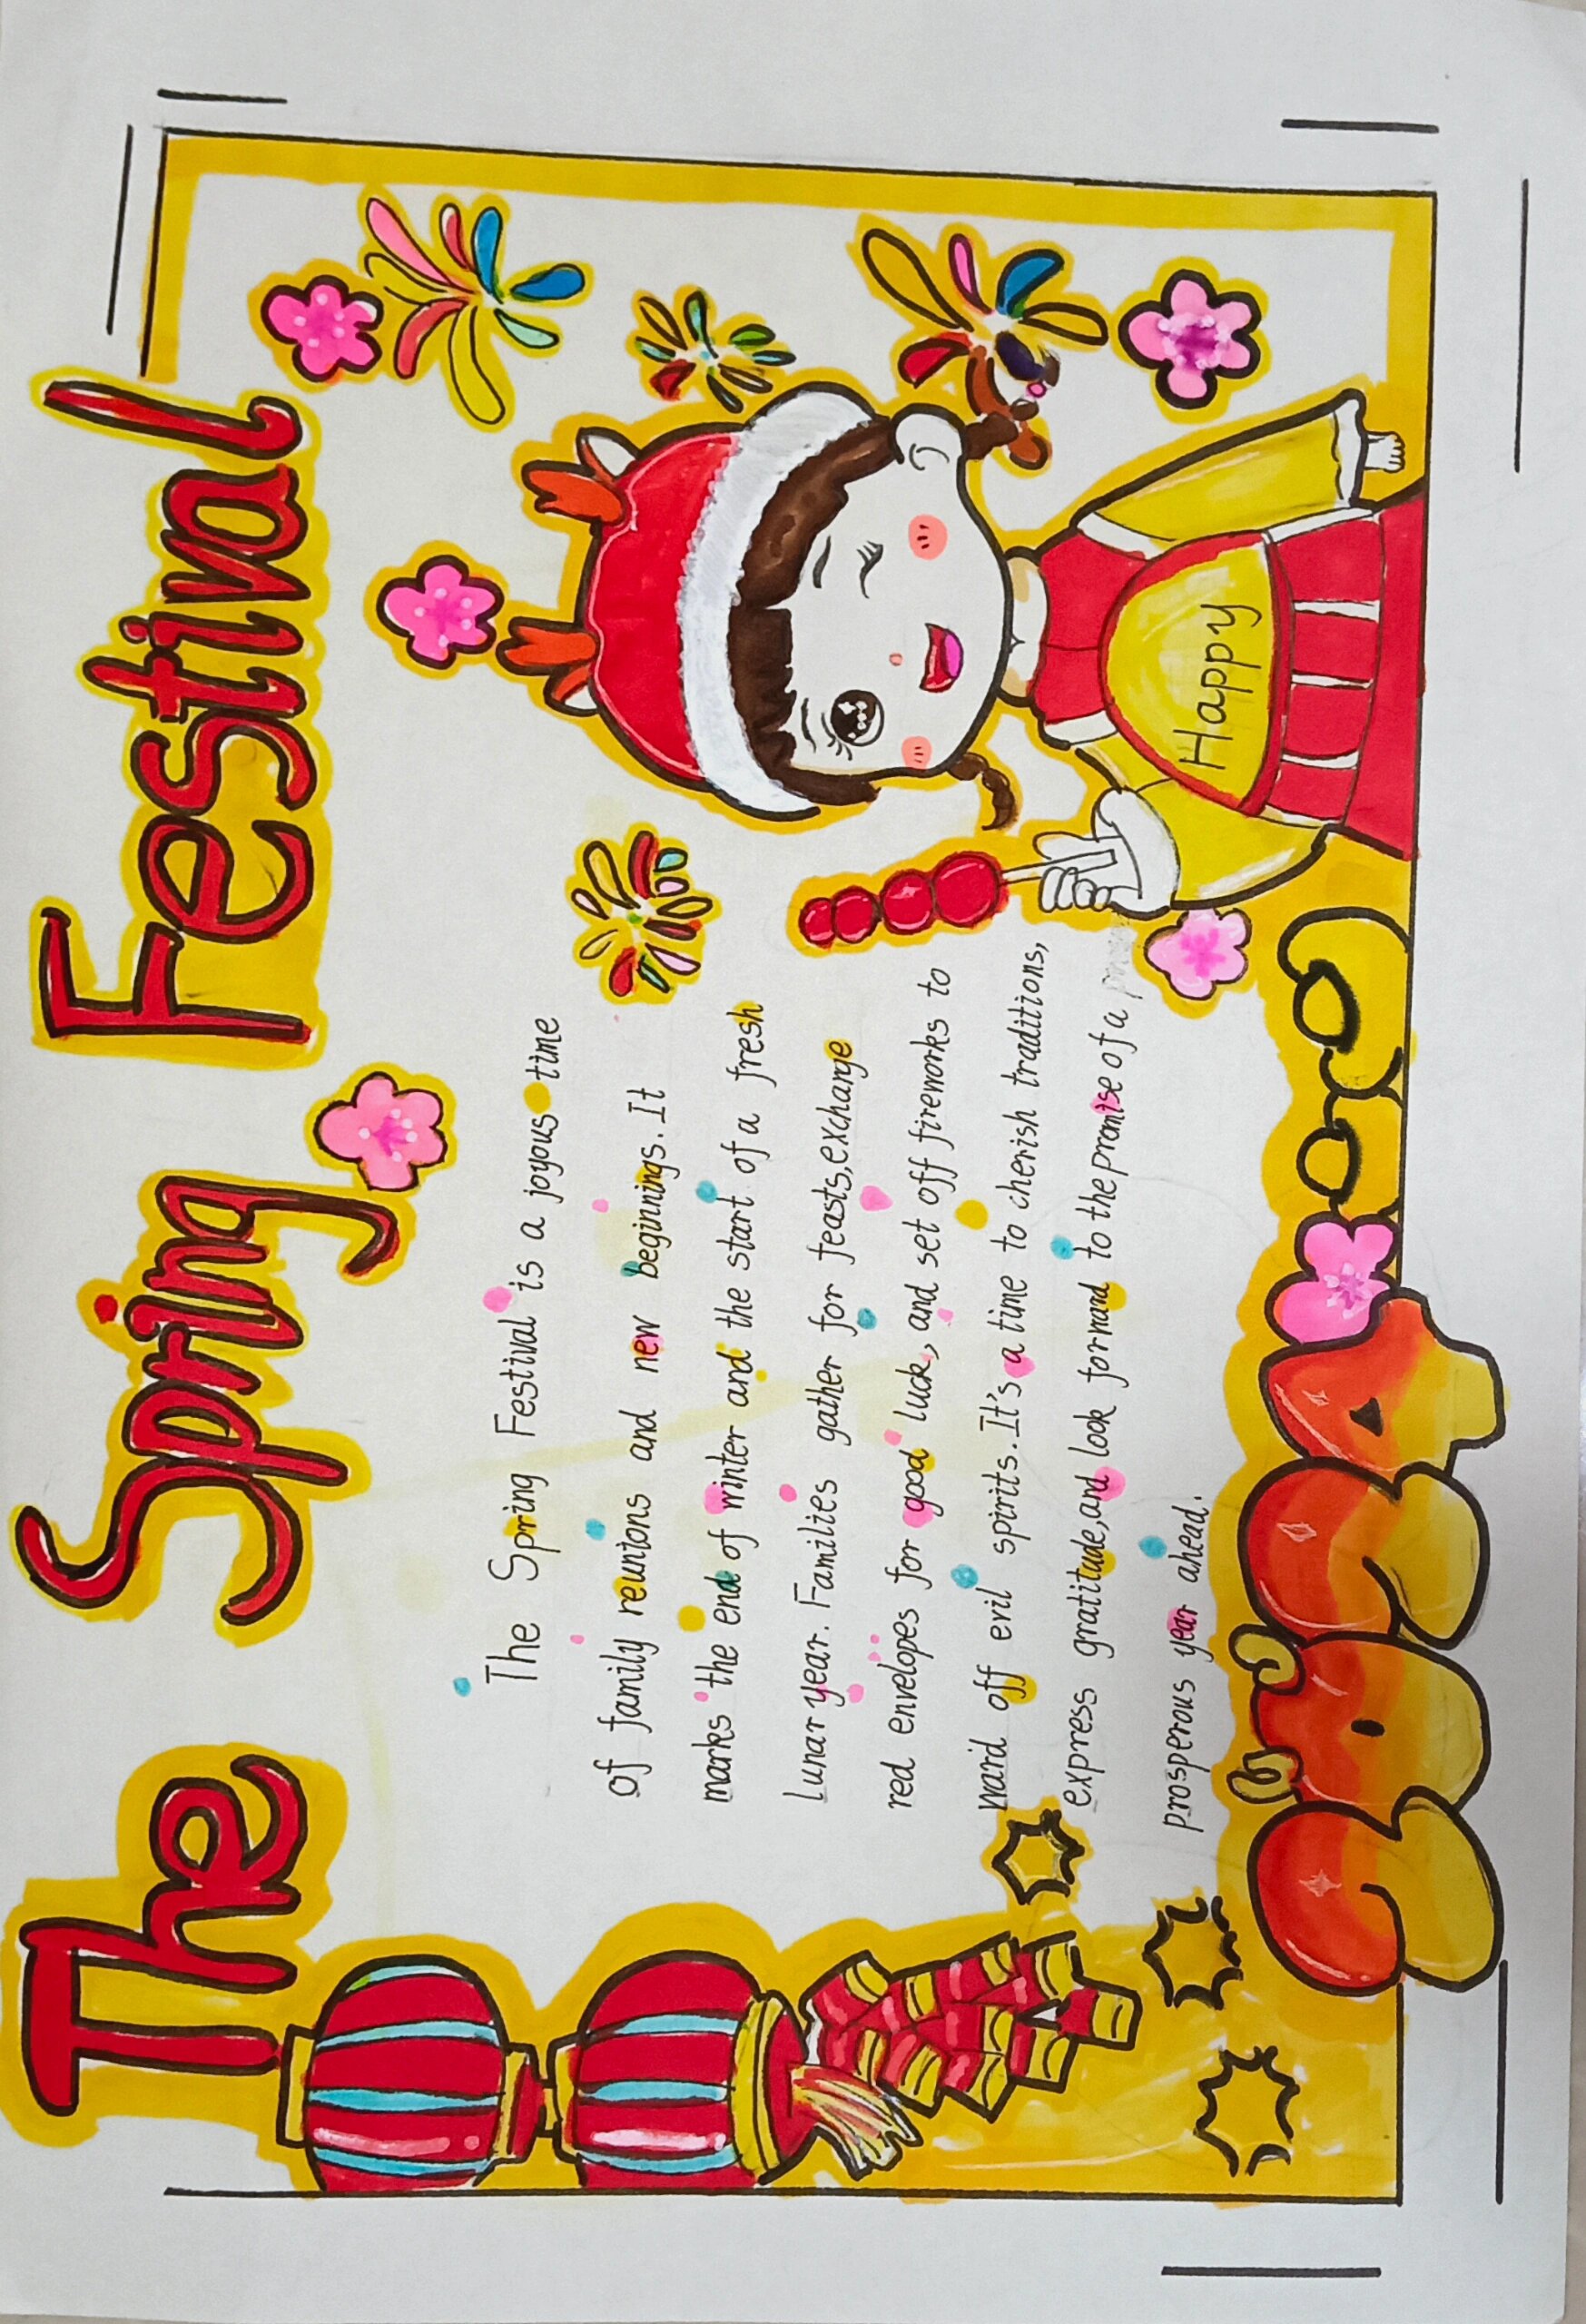 The Spring Festival
The Spring Festival is a joyous time
of family reunions and new beginnings. It
marks the end of winter and the start of a fresh
Lunar year. Families gather for feasts, exchange
red envelopes for good luck, and set off fireworks to
ward off evil spirits. It's a time to cherish traditions,
express gratitude, and look forward to the promise of a
prosperous year ahead.
Happy
2024